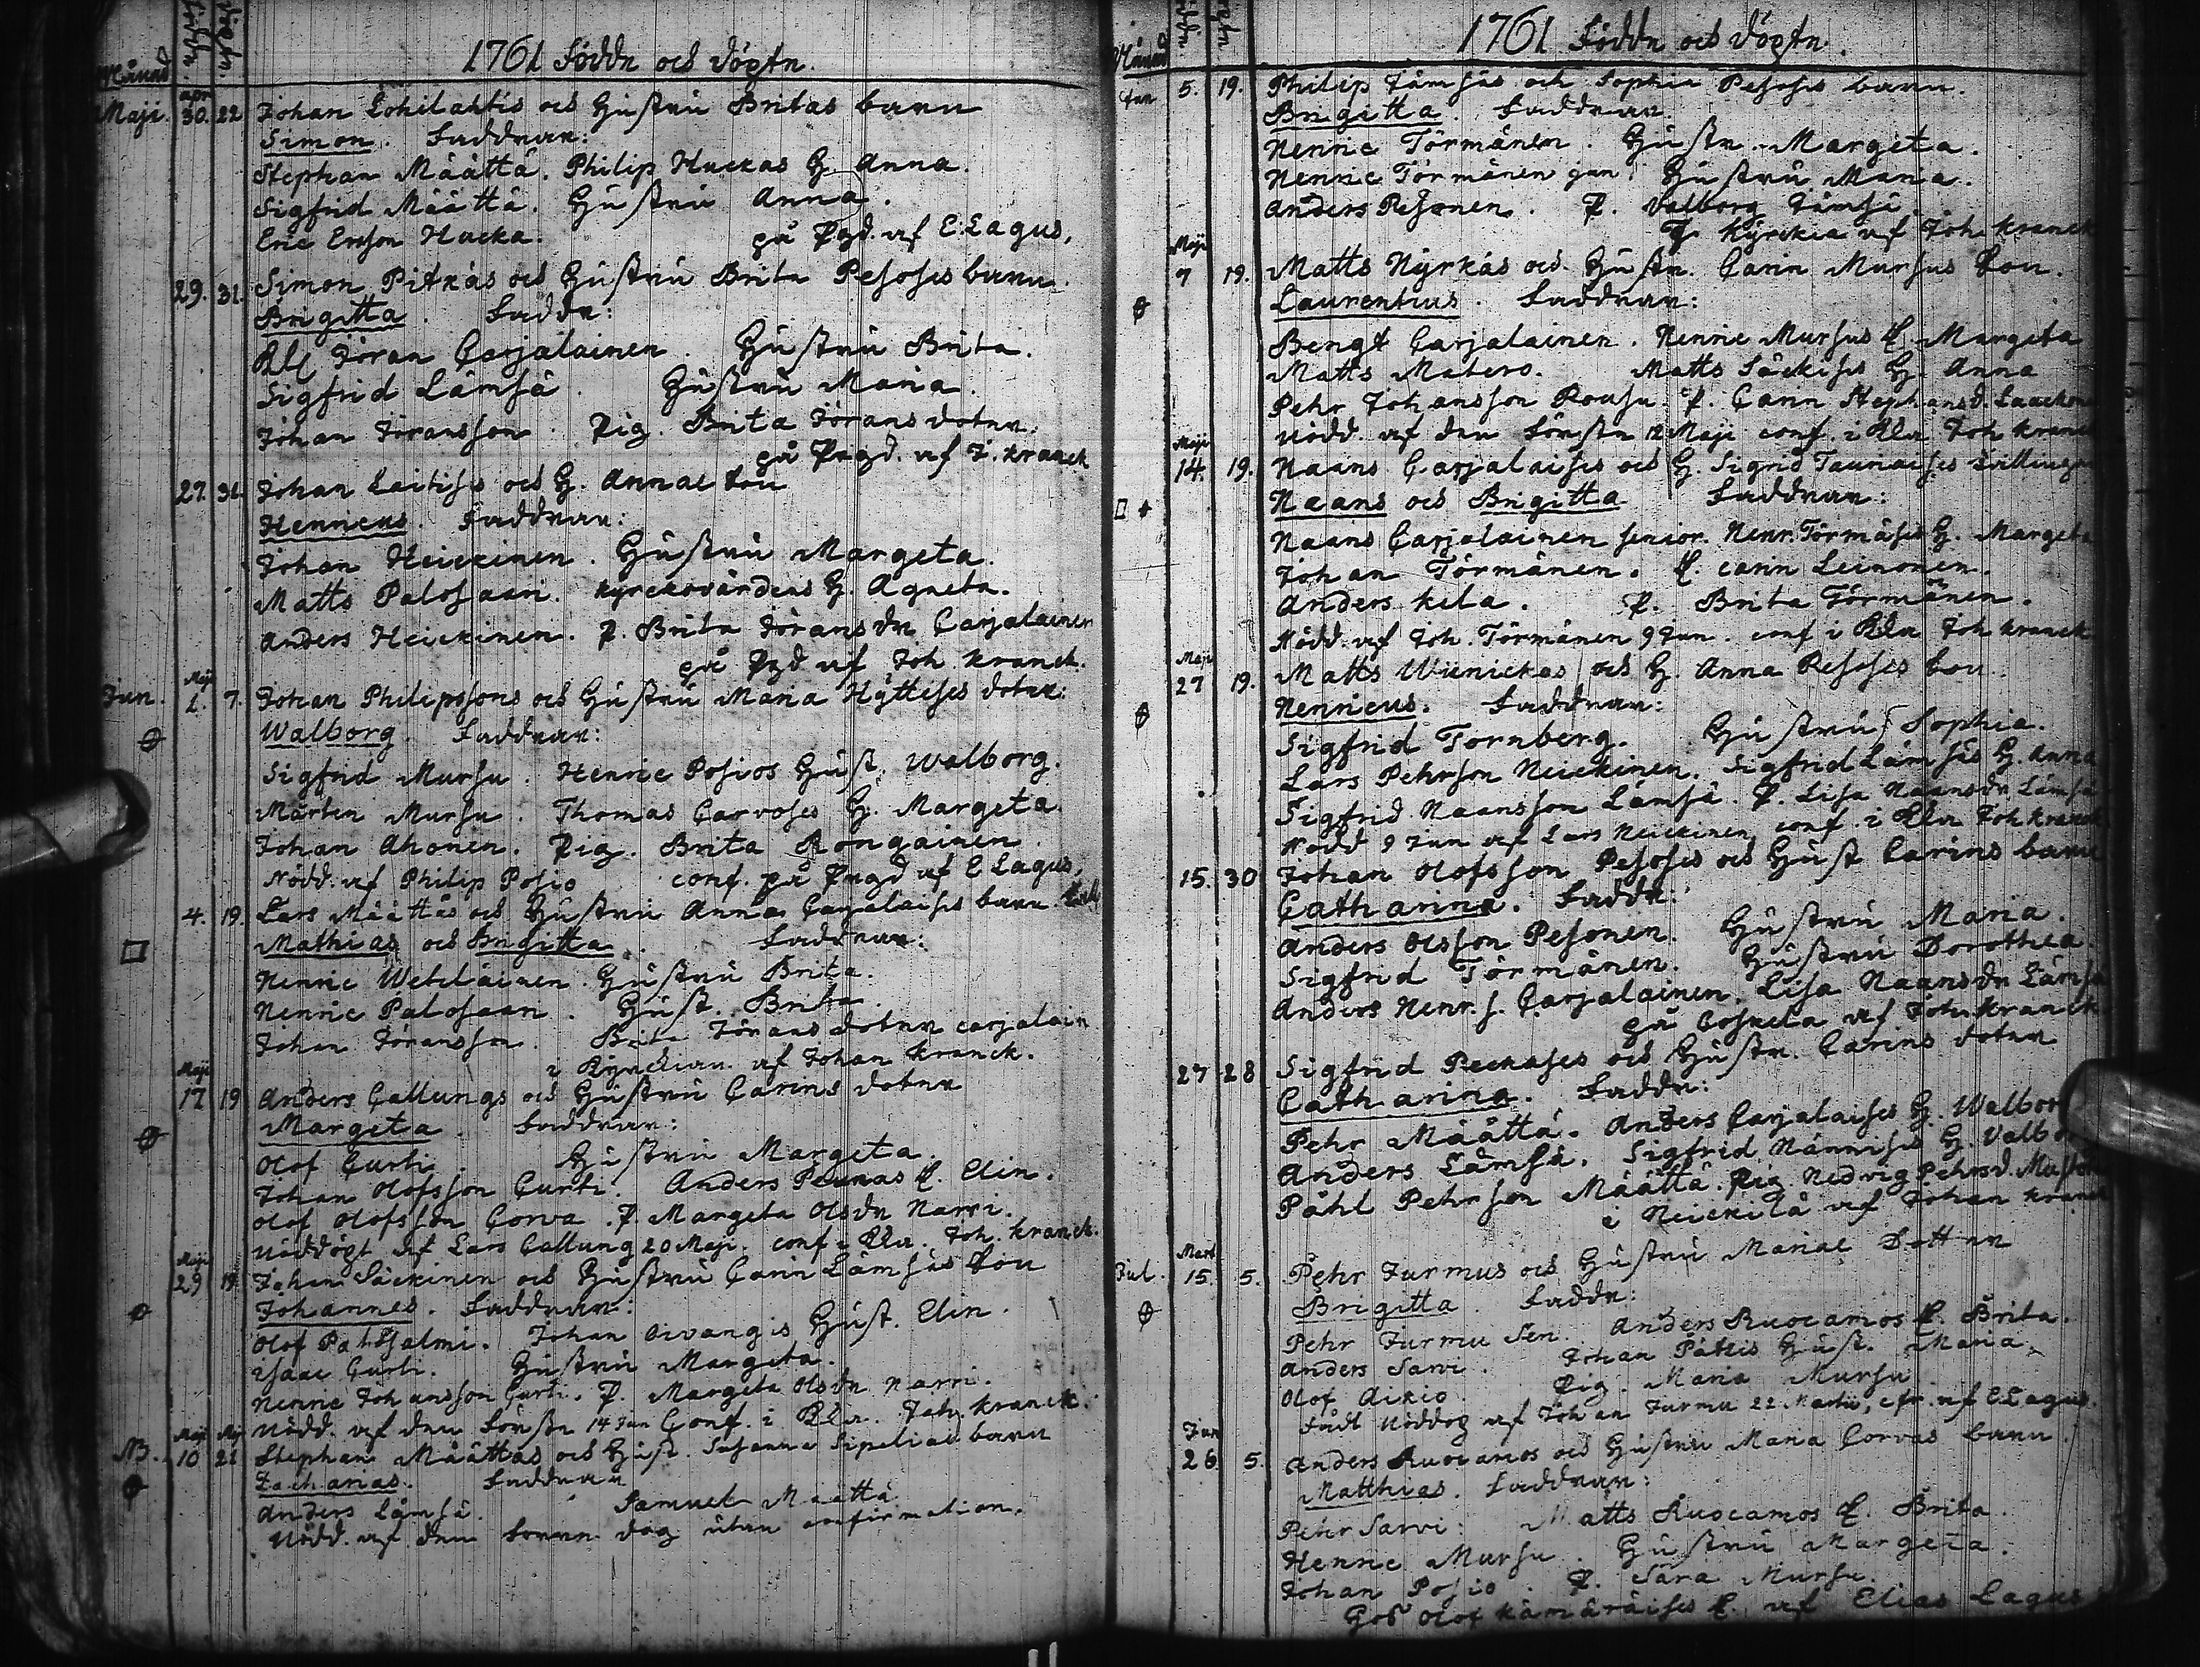 1761 Födde och döpte.
Månad födde. döpte.
Maji. apr 30. 22 Johan Lohilahtis och Hustru Britas barn
Simon. Faddrar:
Stephan Määttä. Philip Huckas H. Anna.
Sigfrid Määttä. Hustru Anna.
Eric Ersson Hucka. på Prgd. af E. Lagus.
29. 31. Simon Pitkäs och Hustru Brita Pesoses barn.
Brigitta. Faddr:
Jöran Carjalainen. Hustru Brita.
Sigfrid Lämsä. Hustru Maria.
Johan Jöransson. Pig. Brita Jörans dotter.
på Prgd. af J. Kranck
27. 31. Johan Laitises och H. Annae Son
Henricus. Faddrar:
Johan Heickinen. Hustru Margeta.
Matts Palosaari. Kyrckovärdens H. Agneta.
Anders Heickinen. P. Brita Jörans dr Carjalainen
på Pgd af Joh. Kranck.
Jun. Maji 1. 7. Johan Philipssons och Hustru Maria Hyttises dotter:
Walborg. Faddrar:
Sigfrid Mursu. Henric Posios Hust. Walborg.
Mårten Mursu. Thomas Carvoses H. Margeta.
Johan Ahonen. Pig. Brita Rongainen.
Nödd. af Philip Posio conf. på Prgd af E Lagus,
4. 19. Lars Määttäs och Hustru Anna Carjalaises barn
Mathias och Brigitta. Faddrar:
Henric Weteläinen. Hustru Brita.
Henric Palosaari. Hust. Brita.
Johan Jöransson. Brita Jörans dotter Carjalain
i Kyrckian af Johan Kranck.
Maji 17 19 Anders Callungs och Hustru Carins dotter
Margeta. Faddrar:
Olof Curti. Hustru Margeta.
Johan Olofsson Curti. Anders Peuras H. Elin.
Olof Olofsson Corva. P. Margeta Olsdr Narri.
Nöddöpt af Lars Callung 20 Maji. conf i Kkn. Joh. Kranck.
Maji 29 19. Johan Säckinen och Hustru Carin Lämsäs Son
Johannes. Faddrar:
Olof Patosalmi. Johan Oivangis Hust. Elin.
Isaac Curti. Hustru Margeta.
Henric Johansson Curti. P. Margeta Olsdr Narri.
Nödd. af Jun 14 Jun Conf. i Kkn. Joh. Kranck.
NB. Maji 10 Maji 21 Stephan Määttäs och Hust. Susanna Sipolias barn
Zacharias. Faddrar
Anders Lämsä. Samuel Määttä
Nödd. af dag utan confirmation.
1761 Födde och döpte.
Månad födde döpte
Jun 5. 19. Philip Jämsäs och Sophia Pesoses barn.
Brigitta. Faddrar.
Henric Törmänen. Hustr. Margeta.
Henric Törmänen jun. Hustru Maria.
Anders Pesonen. P. Valborg Jämsä.
Kyrckia af Joh. Kranck
Maji 7 19. Matts Nyrkäs och Hustr. Carin Mursus Son.
Laurentius. Faddrar:
Bengt Carjalainen. Henric Mursus H. Margeta
Matts Matero. Matts Säckises H. Anna
Pehr Johansson Rousu. P. Carin Stephansd.
Nödd. af 12 Maji conf. i Kkn Joh Kranck
Maji 14. 19. Haans Carjalaises och H. Sigrid Tauriaises tvillingar
Haans och Brigitta Faddrar:
Haans Carjalainen senior. Henr. Törmäses H. Margeta
Johan Törmänen. P. Carin Leinonen.
Anders Kela. P. Brita Törmänen.
Nödd. af Joh. Törmänen 9 Jun. conf i Kkn Joh Kranck
Maji 27 19. Matts Wienickas och H. Anna Pesoses Son.
Henricus. Faddrar:
Sigfrid Tornberg. Hustru Sophia.
Lars Pehrson Heickinen. Sigfrid Lämsäs H. Anna
Sigfrid Haansson Lämsä. P. Lisa Haansdr Lämsä
Nödd 9 Jun af Lars Heickinen conf. i Kkn Joh Kranck
15. 30 Johan Olofsson Pesoses och Hust Carins barn
Catharina. Faddr:
Anders Olsson Pesonen. Hustru Maria.
Sigfrid Törmänen. Hustru Dorothea.
Anders Henr. s. Carjalainen. Lisa Haansdr Lämsä
på Coskela af Joh. Kranck
27 28 Sigfrid Peckases och Hustr. Carins dotter
Catharina. Faddr:
Pehr Määttä. Anders Carjalaises H. Walborg
Anders Lämsä. Sigfrid Männises H. Valborg
Påhl Pehrson Määttä. Pig Hedvig Pehrsd.
i Heickilä af Johan Kranck
Jul. Mart 15. 5. Pehr Jurmus och Hustru Mariae Dotter
Brigitta. Faddr:
Pehr Jurmu Sen. Anders Ruocamos H. Brita.
Anders Sarvi. Johan Pättis Hust. Maria.
Olof Aikio. Pig. Maria Mursu
Födt Nöddop af Johan Jurmu 22. Martii, cfr. af E Lagus.
Jun 26. 5. Anders Ruocamos och Hustru Maria Corvas barn.
Matthias. Faddrar:
Pehr Sarvi: Matts Ruocamos H. Brita.
Henric Mursu. Hustru Margeta.
Johan Posio. P. Sara Mursu.
Hos Olof Kämäräises H. af Elias Lagus